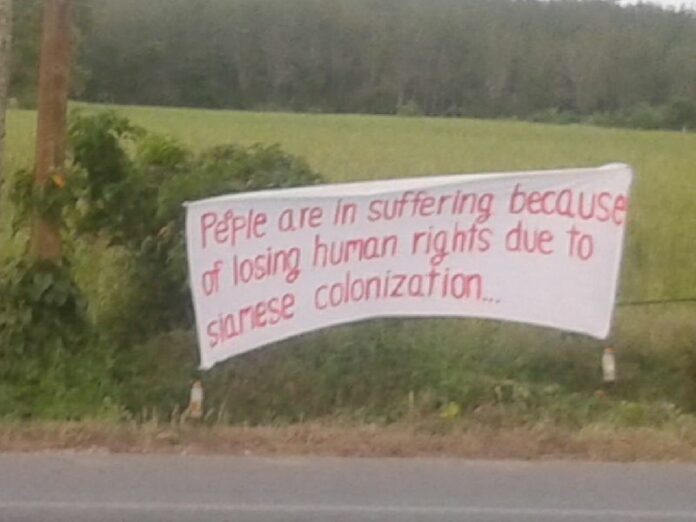 Peple are in suffering because
of losing human rights due to
siamese colonization...